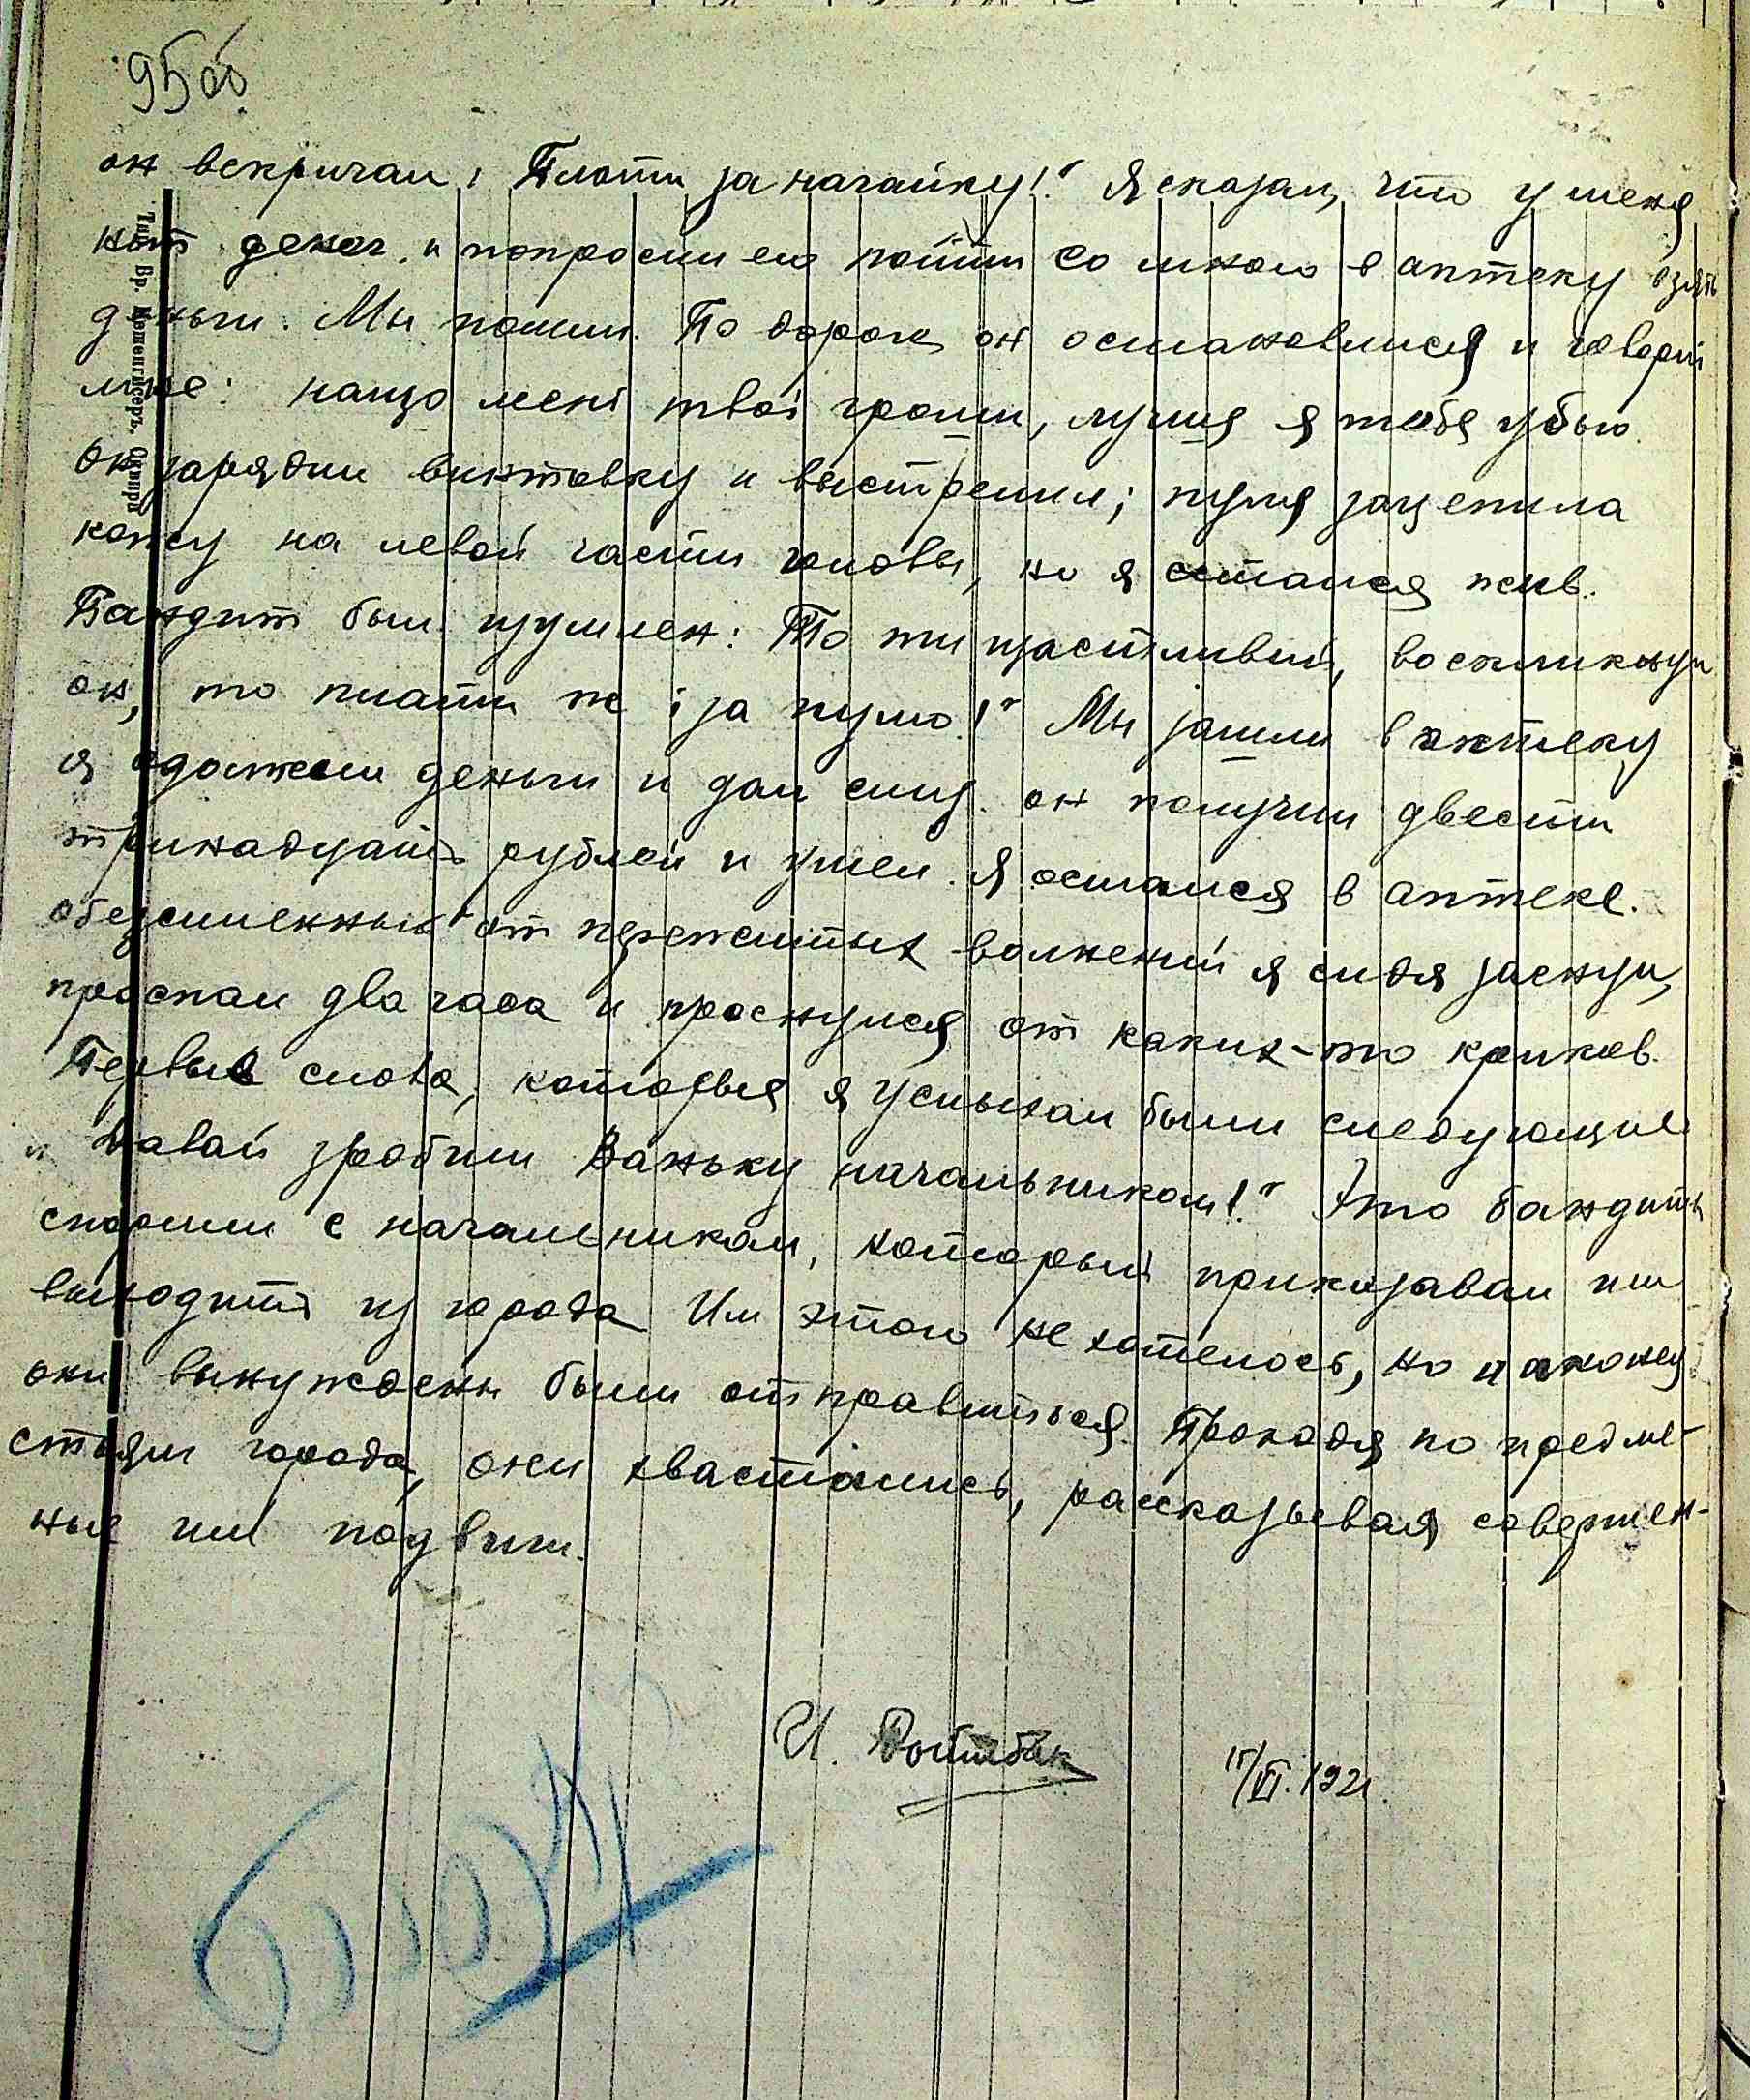 95 об.
он вскричал, Плати за нагайку!" Я сказал, что у меня
нет денег и попросил его пойти со мною в аптеку взять
деньги. Мы пошли. По дороге он остановился и говорит
мне: нащо мені твої гроши, лучше я тебе убью.
Он зарядил винтовку и выстрелил; пуля зацепила
кожу на левой части головы, но я остался жив.
Бандит был изумлен: То ти щастливий, воскликнул
он, то плати ж і за пулю!" Мы зашли в аптеку
я одолжил деньги и дал ему. Он получил двести
тринадцать рублей и ушел. Я остался в аптеке.
обезсиленный от пережитых волнений я сидя заснул,
проспал два часа и проснулся от каких-то криков.
Первые слова, которыя я услыхал были следующие
„Давай зробим Ваньку начальником!" Это бандиты
спорили с начальником, который приказывал им
выходить из города Им этого не хотелось, но наконец
они вынуждены были отправиться. Проходя по предме-
стьям города, они хвастались, рассказывая совершен-
ные ими подвиги.
И. Ройтбак
15/VI. 1921.
Тип. Вр. Сквира